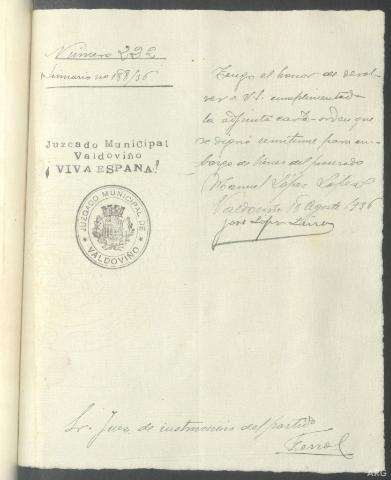 Número 232
Sumario no 188/36
Juzgado Municipal
Valdoviño
¡VIVA ESPAÑA!
JUZGADO MUNICIPAL DE
VALDOVIÑO
Tengo el honor de devol
ver a V.S. cumplimentada
la adjunta carta-orden que
se dignó remitirme para em
bargo de bienes del procesado
Manuel López López
Valdoviño 18 Agosto 1936
José López
Sr. Juez de instrucción del partido
Ferrol
ARG